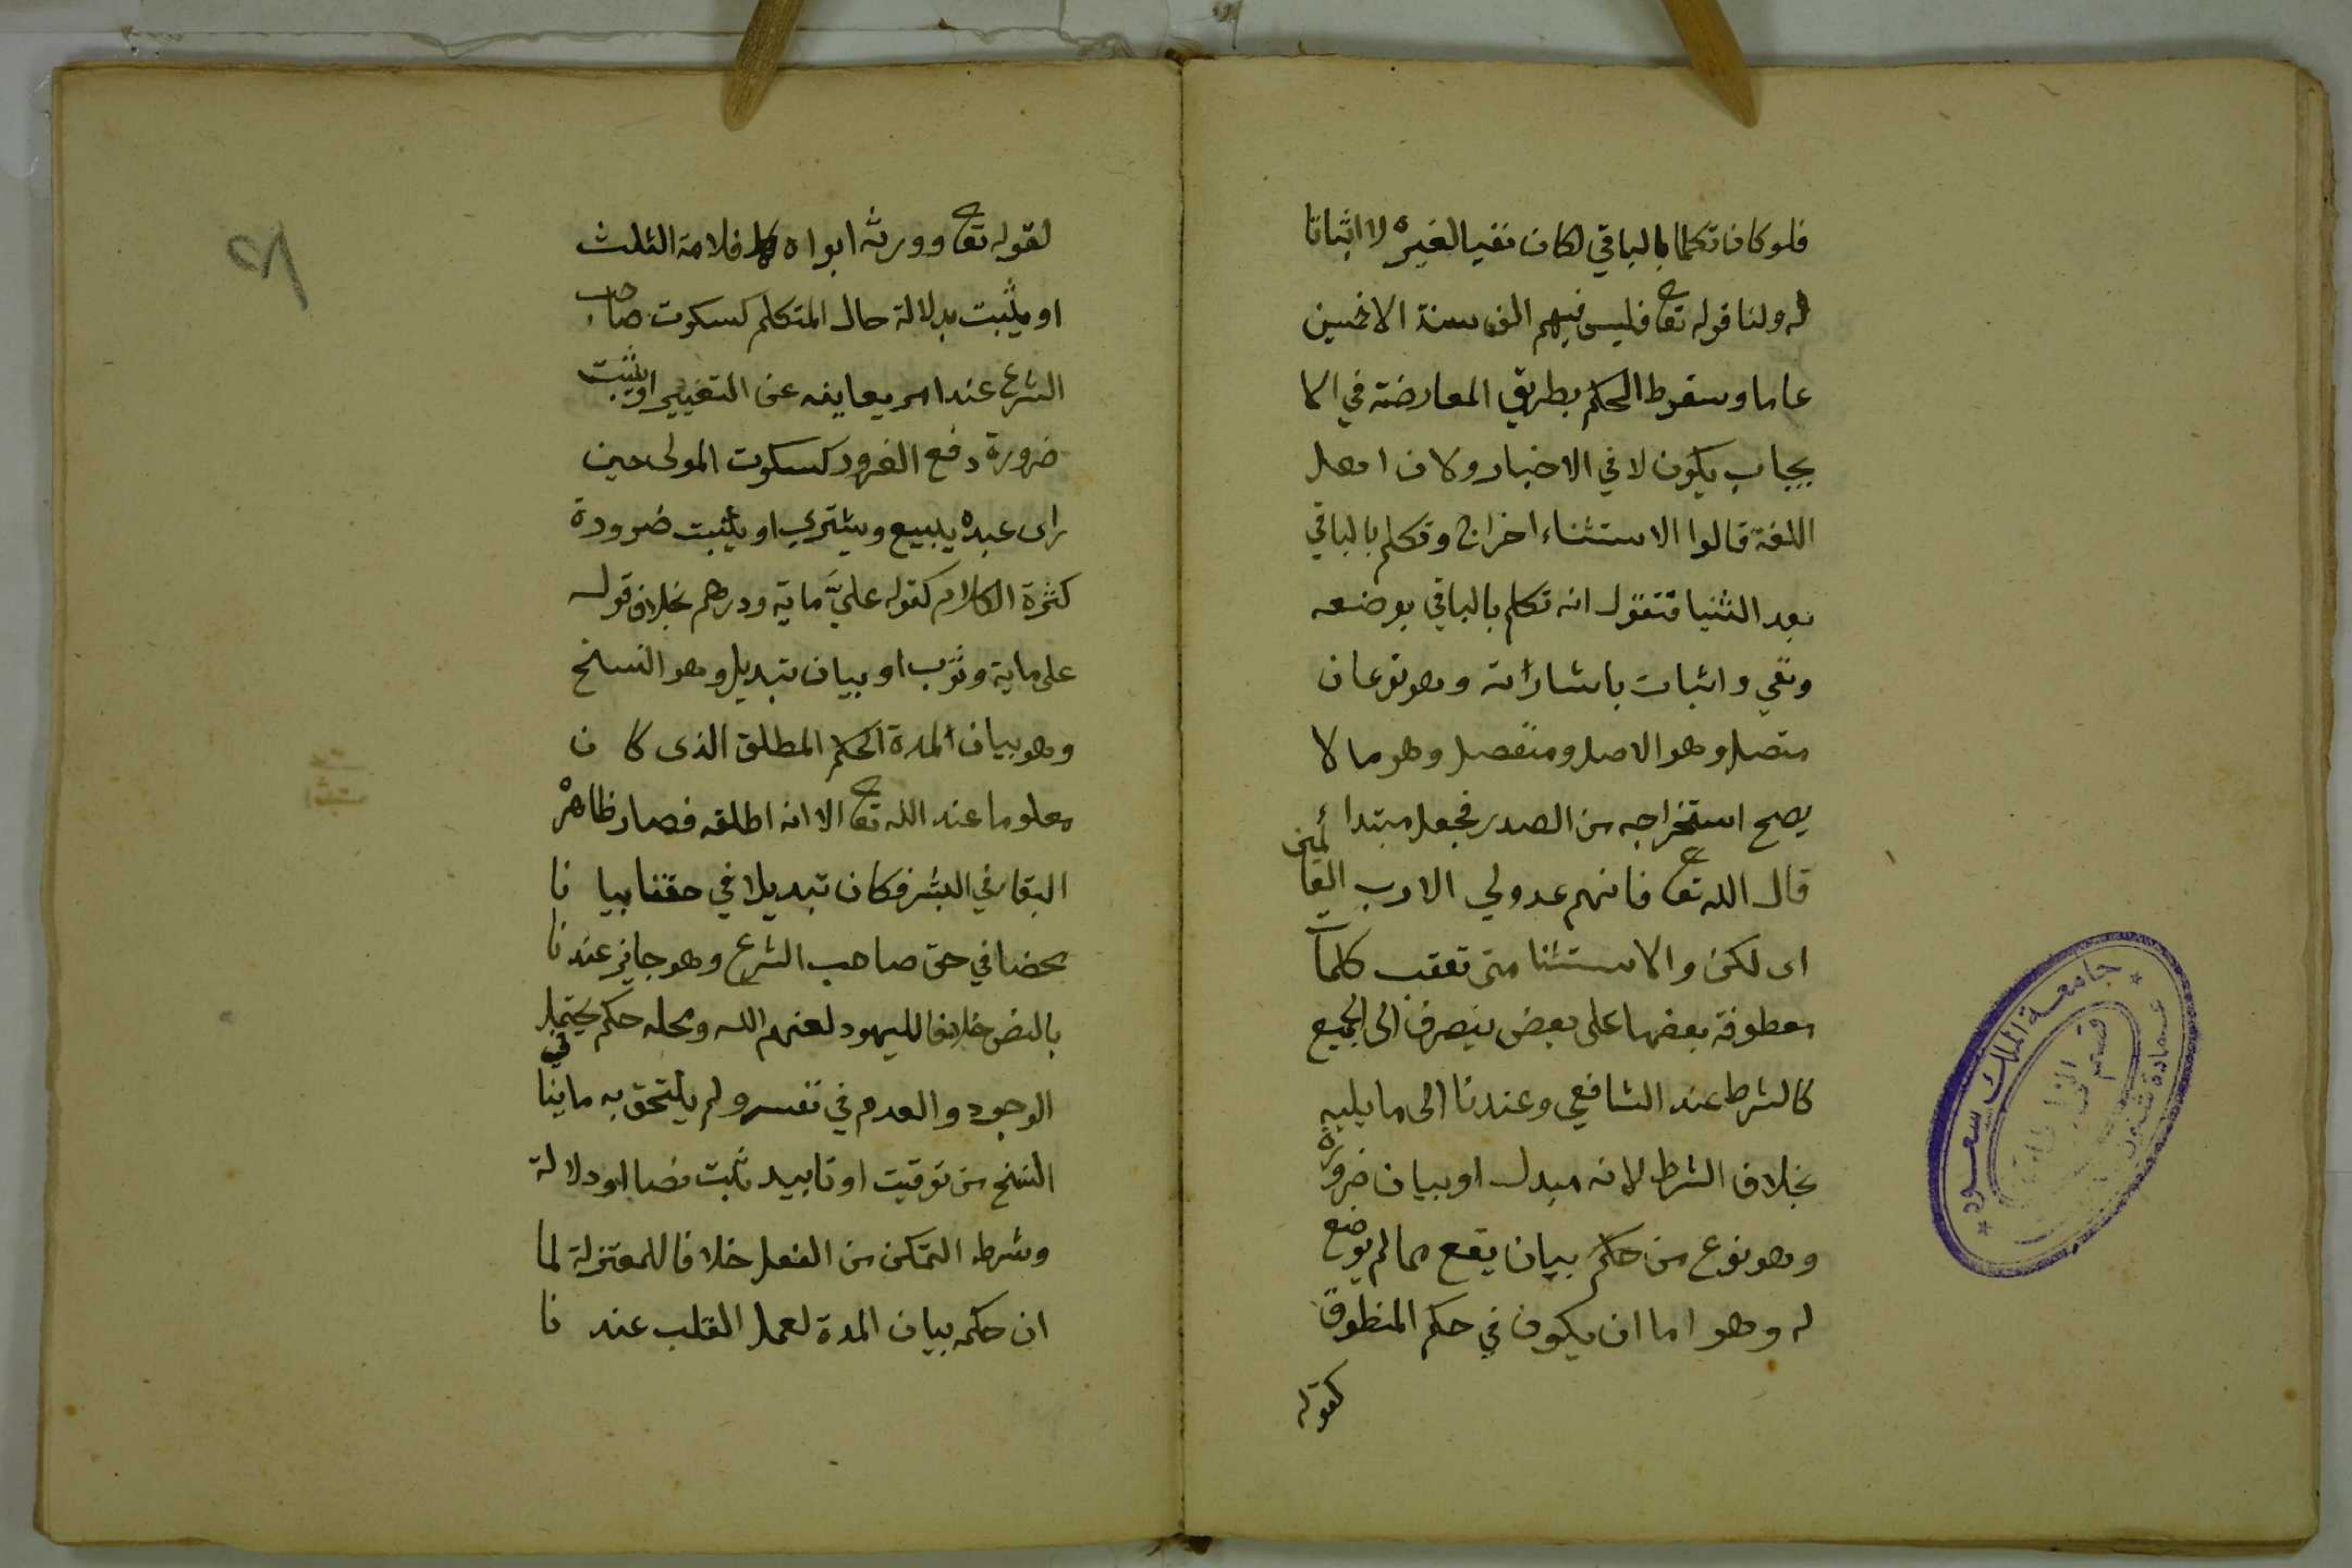 فلو كان تكلما بالباقي لكان نفيا لغيره لا اثباتا
له ولنا قوله تعا فليس فيهم الف سنة الا خمسين
عاما وسقوط الحكم بطريق المعارضة في الا
يجاب يكون لا في الاخبار ولان اهل
اللغة قالوا الاستثناء اخراج وتكلم بالباقي
بعد الثنيا فتقول انه تكلم بالباقي بوضعه
ونفي واثبات باشارته وهو نوعان
متصل وهو الاصل ومنفصل وهو ما لا
يصح استخراجه من الصدر فجعل مبتدا
قال الله تعا فانهم عدو لي الا رب العالمين
اى لكن والاستثنا متى تعقب كلمات
معطوفة بعضها على بعض ينصرف الى الجميع
كالشرط عند الشافعي وعندنا الى ما يليه
بخلاف الشرط لانه مبدل او بيان ضرورة
وهو نوع من حكم بيان يقع مما لم يوضع
له وهو اما ان يكون في حكم المنطوق
كقوله
لقوله تعا وورثه ابواه فلامه الثلث
او يثبت بدلالة حال المتكلم كسكوت صاحب
الشرع عند امر يعاينه عن التغيير او يثبت
ضرورة دفع الغرور كسكوت المولى حين
راى عبده يبيع ويشتري او يثبت ضرورة
كثرة الكلام كقوله عليَّ ماية ودرهم بخلاف قوله
على ماية وثوب او بيان تبديل وهو النسخ
وهو بيان المدة الحكم المطلق الذى كان
معلوما عند الله تعا الا انه اطلقه فصار ظاهره
البقا في البشر فكان تبديلا في حقنا بيانا
محضا في حق صاحب الشرع وهو جايز عندنا
بالنص خلافا لليهود لعنهم الله ومحله حكم يحتمل
الوجود والعدم في نفسه ولم يلتحق به ما ينافي
النسخ من توقيت او تابيد ثبت نصا او دلالة
وشرط التمكن من الفعل خلافا للمعتزلة لما
ان حكمه بيان المدة لعمل القلب عندنا
جامعة الملك سعود